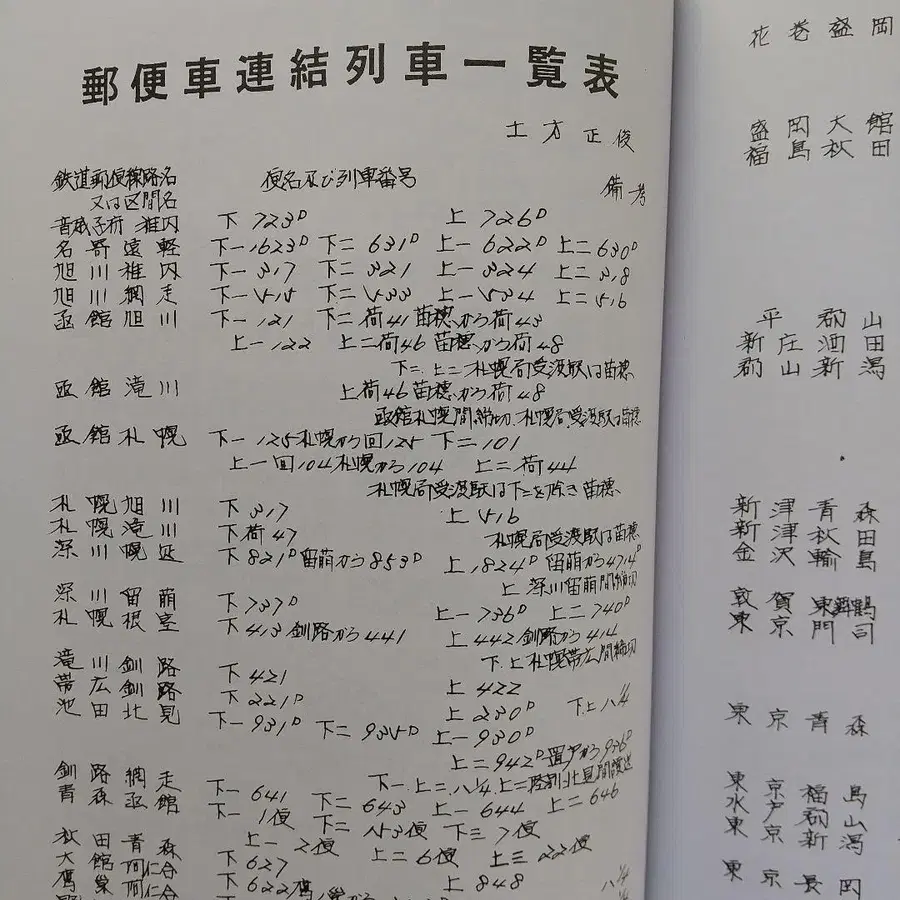 郵便車連結列車一覧表
土方正俊
鉄道郵便線路名 便名及び列車番号 備考
又は区間名
音威子府 稚内 下 723D 上 726D
名寄遠軽 下一1623D 下二631D 上一622D 上二630D
旭川稚内 下一317 下二321 上一324 上二318
旭川網走 下一515 下二533 上一534 上二516
函館旭川 下一121 下二荷41苗穂から荷43
上一122 上二荷46苗穂から荷48
下二、上二札幌局受渡駅は苗穂
函館滝川 上荷46苗穂から荷48
函館札幌間締切、札幌局受渡駅は苗穂
函館札幌 下一125札幌から回125 下二101
上一回104札幌から104 上二荷44
札幌局受渡駅は下二を除き苗穂
札幌旭川 下 317 上 516
札幌滝川 下荷47 札幌局受渡駅は苗穂
深川幌延 下821D留萌から853D 上1824D留萌から4714D
上 深川留萌間締切
深川留萌 下737D 上一736D 上二740D
札幌根室 下413釧路から441 上442釧路から414
下、上札幌帯広間締切
滝川釧路 下421 上422
帯広釧路 下221D 上230D 下上八¼
池田北見 下一931D 下二935D 上一930D
上二942D置戸から936D
下一上二、八¼上二陸別北見間護送
釧路網走 下一641 下二643 上一644 上二646
青森函館 下一1便 下二153便 下三7便
上一2便 上二6便 上三22便
秋田青森 下627 上848
大館阿仁合 下622鷹ノ巣から 八¼
鷹巣阿仁合
花巻盛岡
盛岡大館
福島秋田
平郡山
新庄酒田
郡山新潟
新津青森
新津秋田
金沢輪島
敦賀東舞鶴
東京門司
東京青森
東京福島
水戸郡山
東京新潟
東京長岡